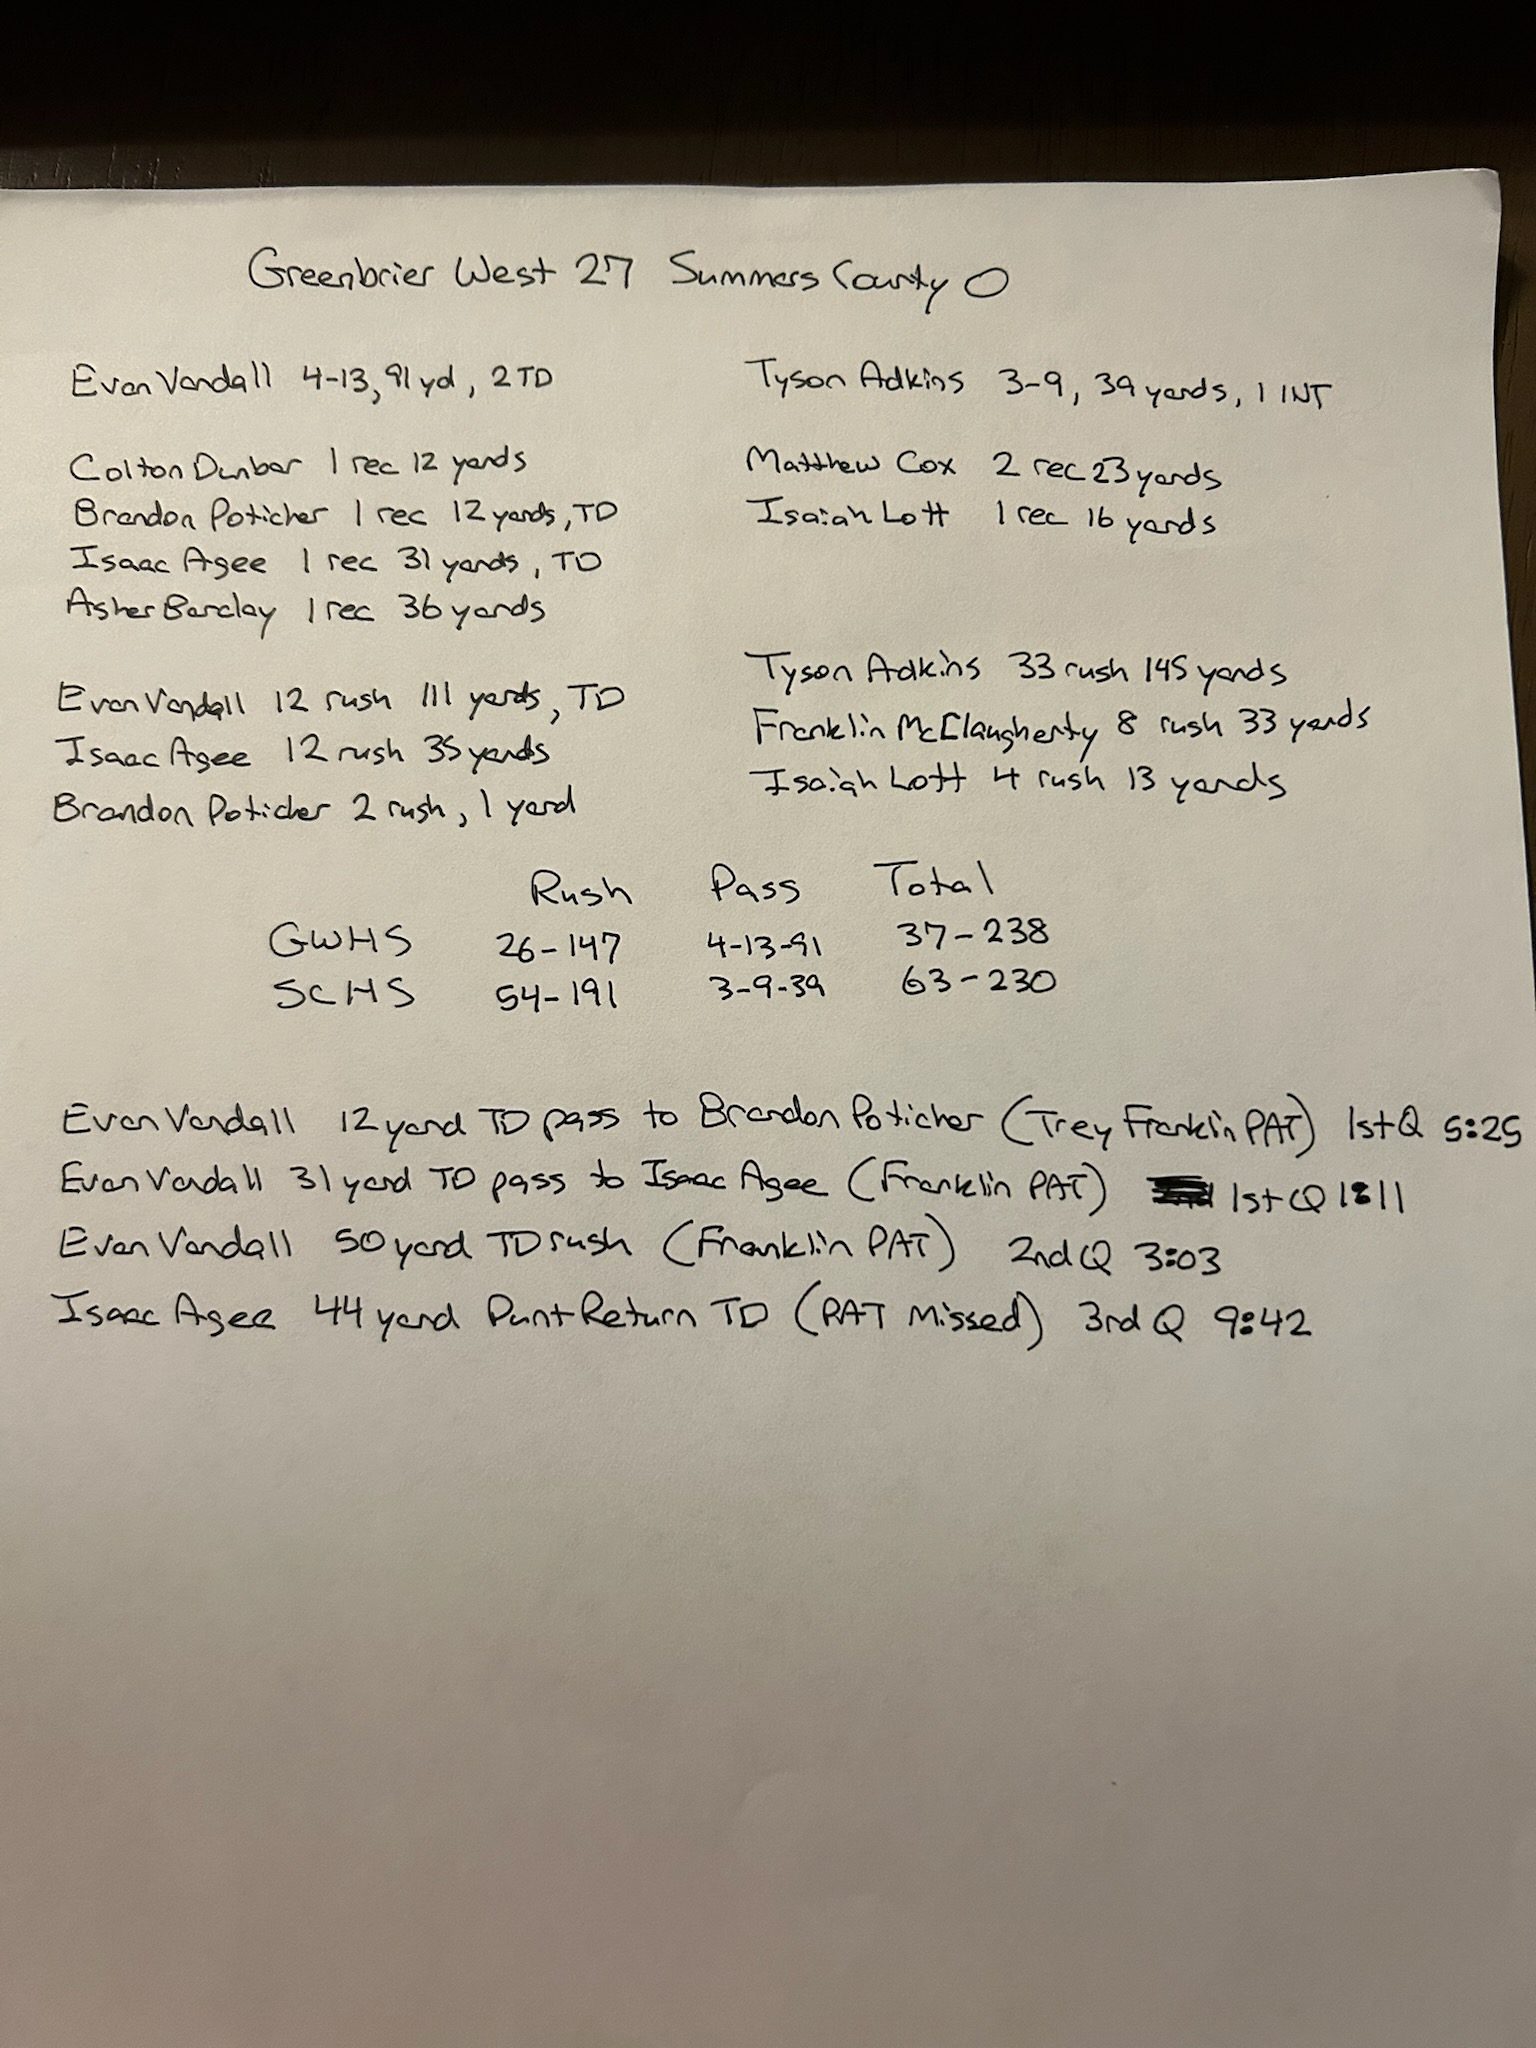 Greenbrier West 27 Summers County 0
Evan Vandall 4-13, 91 yd, 2 TD
Colton Dunbar 1 rec 12 yards
Brandon Poticher 1 rec 12 yards, TD
Isaac Agee 1 rec 31 yards, TD
Asher Barclay 1 rec 36 yards
Evan Vandall 12 rush 111 yards, TD
Isaac Agee 12 rush 35 yards
Brandon Poticher 2 rush, 1 yard
Tyson Adkins 3-9, 39 yards, 1 INT
Matthew Cox 2 rec 23 yards
Isaiah Lott 1 rec 16 yards
Tyson Adkins 33 rush 145 yards
Franklin McClaugherty 8 rush 33 yards
Isaiah Lott 4 rush 13 yards
Rush Pass Total
GWHS 26-147 4-13-91 37-238
SCHS 54-191 3-9-39 63-230
Evan Vandall 12 yard TD pass to Brandon Poticher (Trey Franklin PAT) 1st Q 5:25
Evan Vandall 31 yard TD pass to Isaac Agee (Franklin PAT) 1st Q 1:11
Evan Vandall 50 yard TD rush (Franklin PAT) 2nd Q 3:03
Isaac Agee 44 yard Punt Return TD (PAT Missed) 3rd Q 9:42